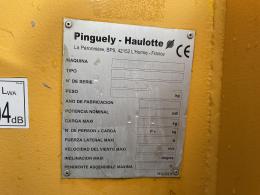 Pinguely - Haulotte
La Péronnière, BP9, 42152 L'Horme - France
CE
MAQUINA
TIPO
N° DE SERIE
PESO kg
AÑO DE FABRICACION
POTENCIA NOMINAL
CARGA MAXI
N° DE PERSON + CARGA
FUERZA LATERAL MAXI
VELOCIDAD DEL VIENTO MAXI
INCLINACION MAXI
PENDIENTE ASCENSIBLE MAXIMA
LWA
dB